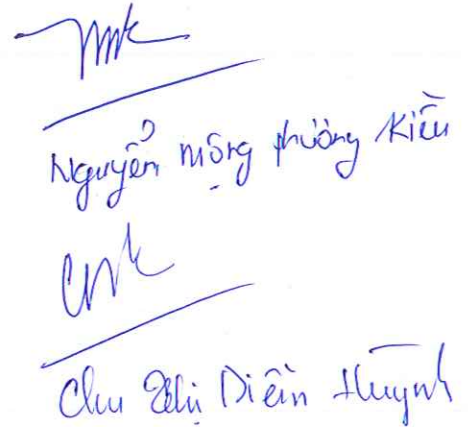 Nguyễn Mộng Phường Kiều
Chu Thị Diễn Huỳnh